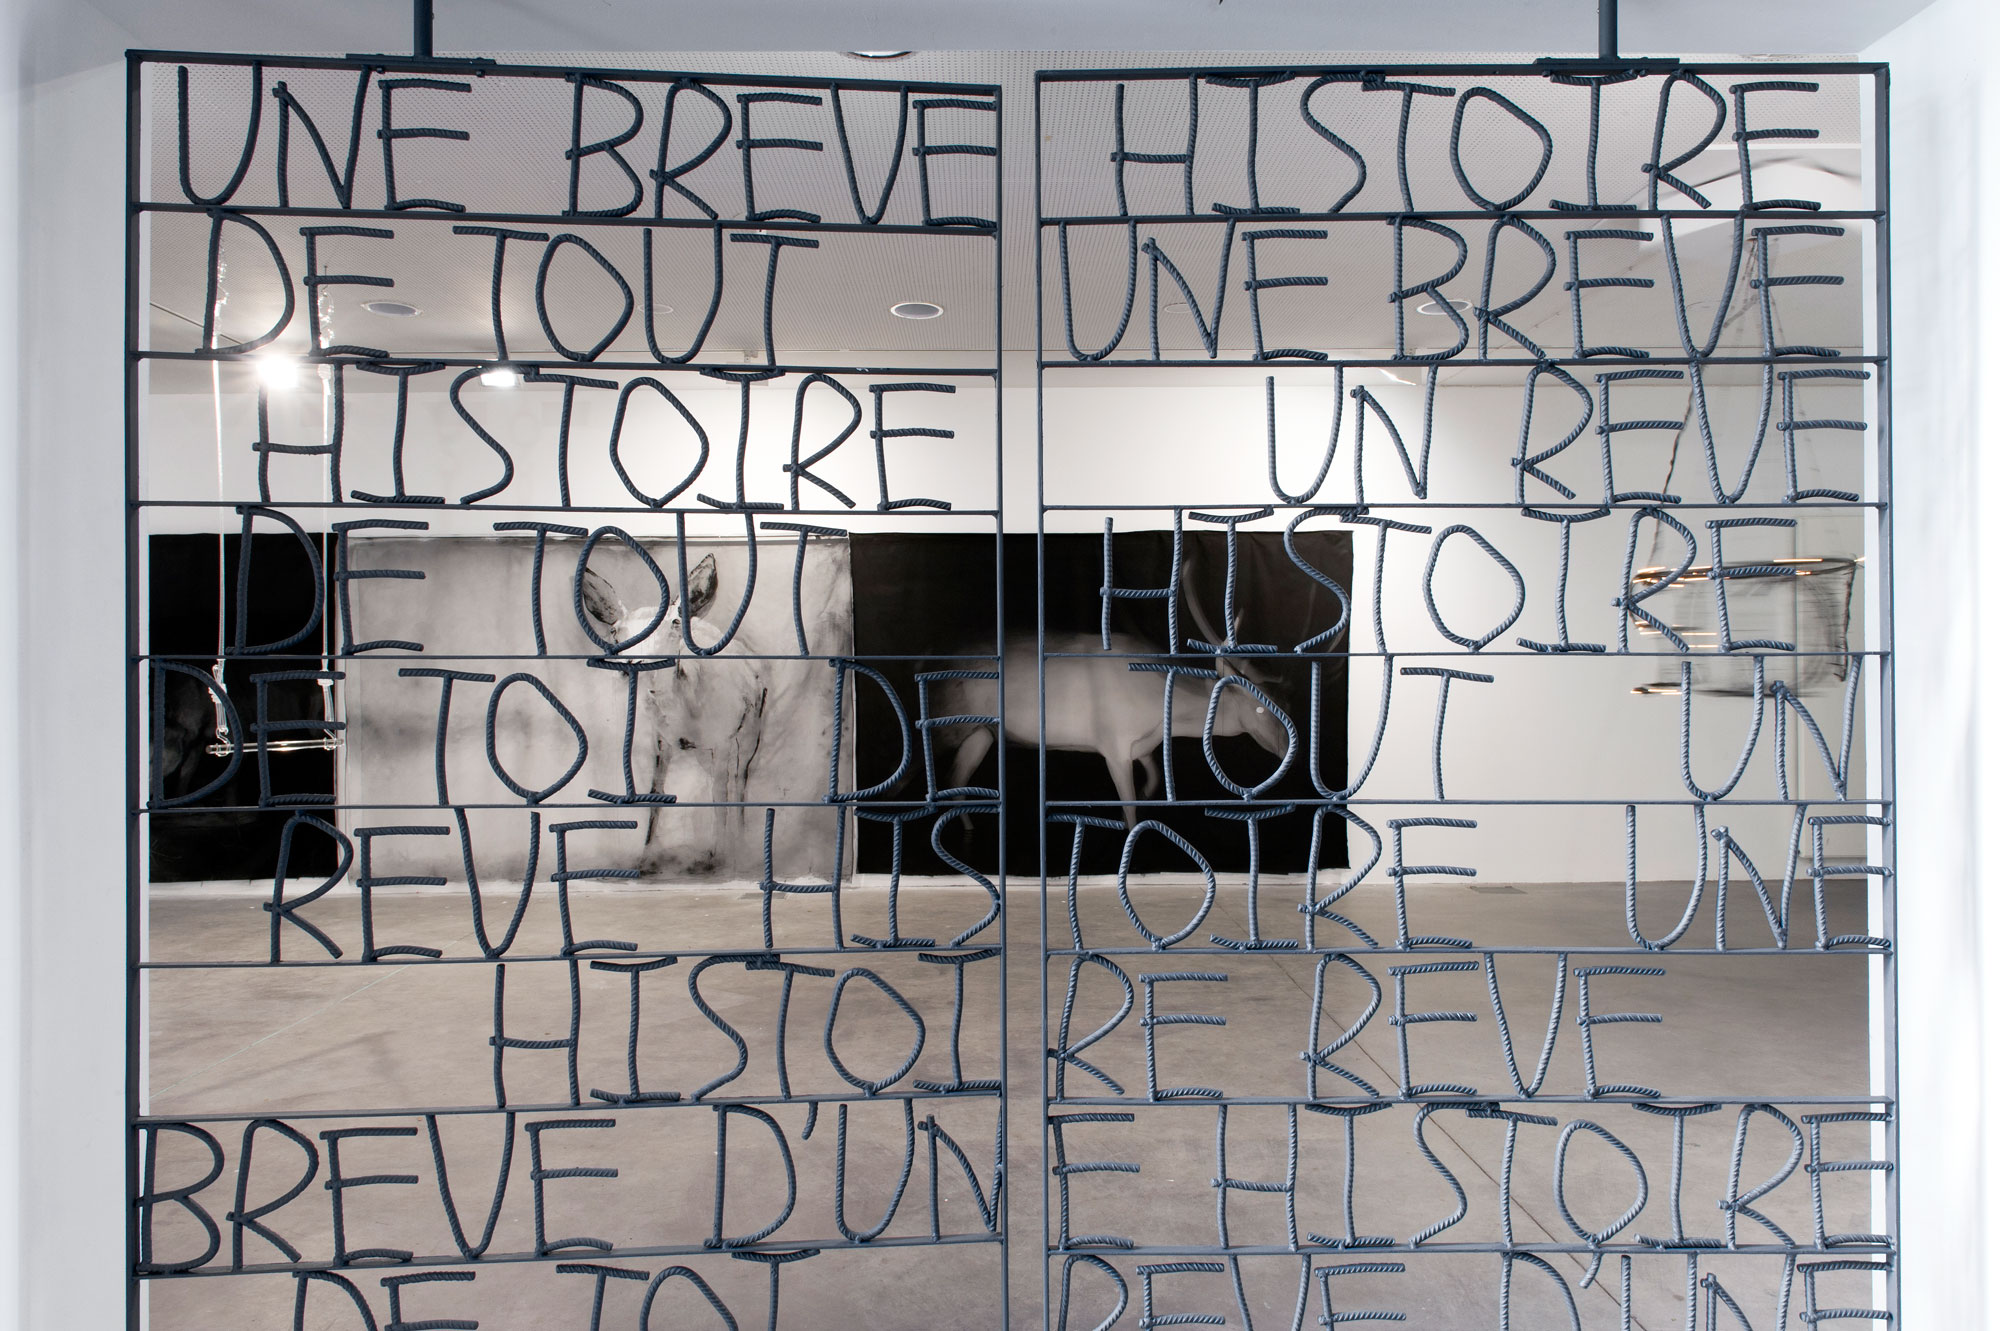 UNE BREVE HISTOIRE
DE TOUT UNE BREVE
HISTOIRE UN REVE
DE TOUT HISTOIRE
DE TOI DE TOUT UN
REVE HISTOIRE UNE
HISTOIRE REVE
BREVE D'UNE HISTOIRE
DE TOI REVE D'UNE